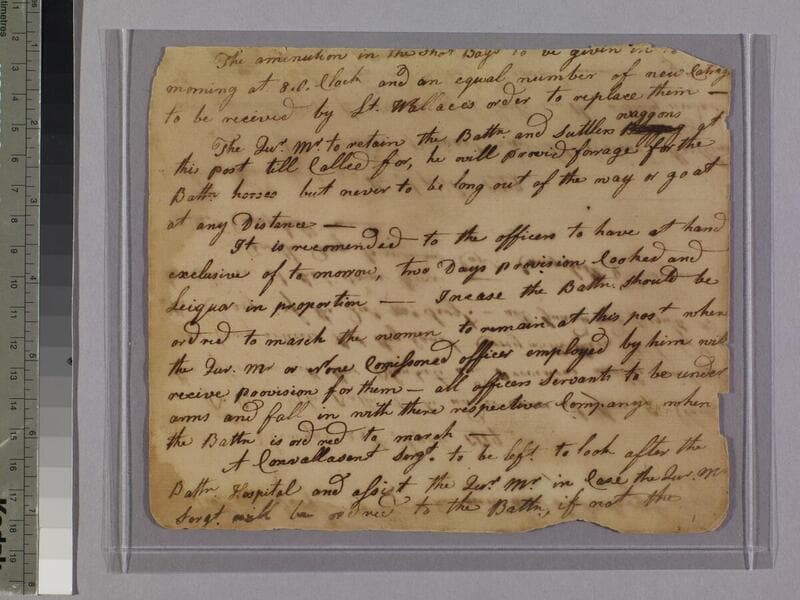 The aminution in the Shot Bags to be given in
morning at 8 O. Clock and an equal number of new Catrag
to be recived by Lt. Wallaces order to replace them —
waggons
The Qur. Mr. to retain the Battn and Suttlers at
this post till Called for, he will provid forrage for the
Battn horses but never to be long out of the way or go at
at any Distance —
It is recomended to the officers to have at hand
exclusive of to morrow, two Days provision Cooked and
Leiquor in proportion — Incase the Battn. should be
ordred to march the women to remain at this post when
the Qur. Mr or None Comissoned officer employed by him will
recive provision for them — all officers Servants to be under
arms and fall in with there respective Company when
the Battn is ordred to march
A Convallasent Sergt. to be left to look after the
Battn. Hospital and assist the Qur. Mr. in Case the Qur. Mr
Sergt. will be ordred to the Battn, if not the